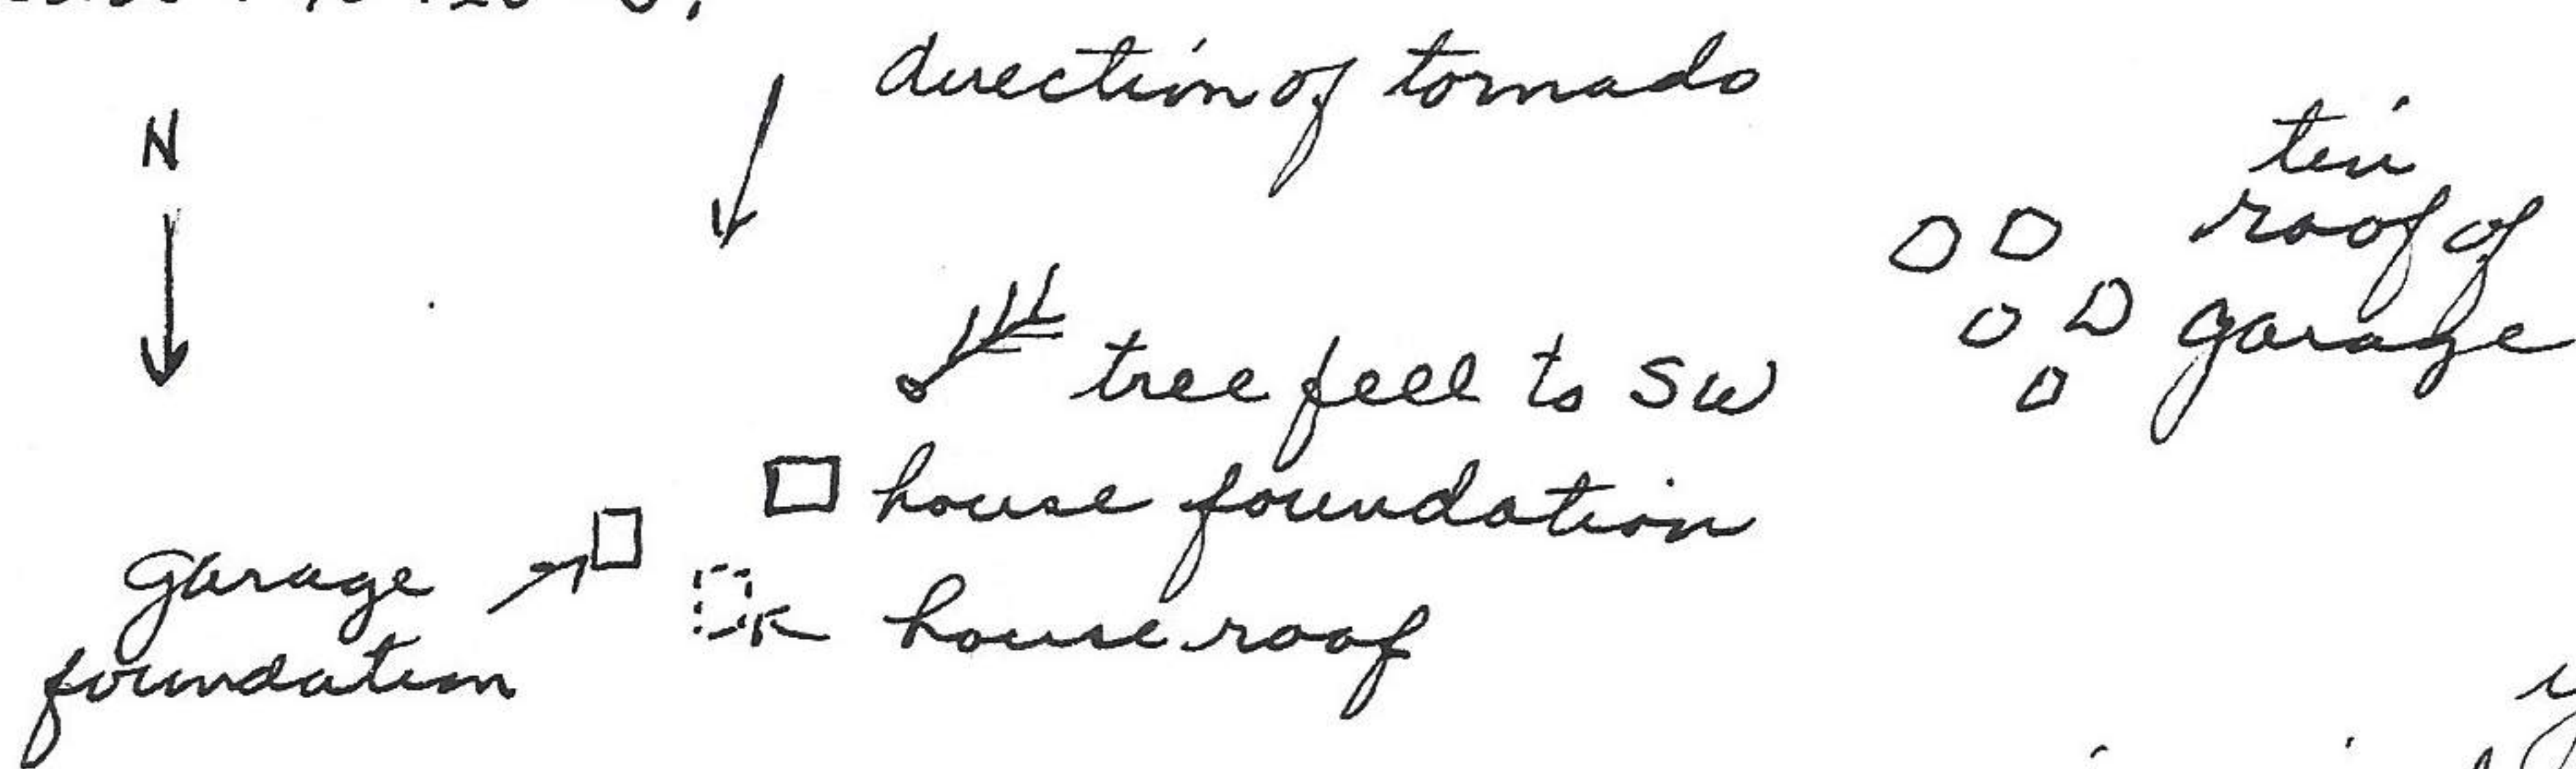 direction of tornado
N
tin
roof of
garage
tree fell to SW
house foundation
garage
foundation
house roof